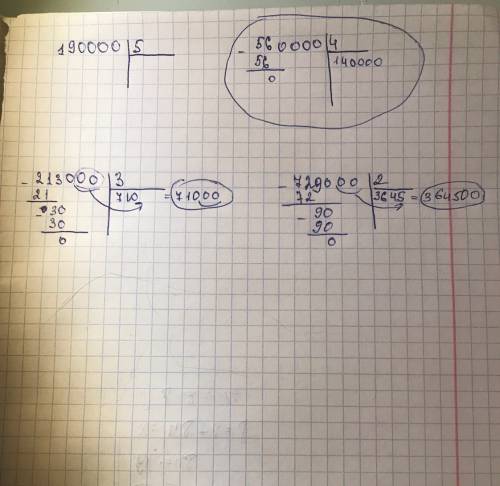 190000 | 5
- 560000 | 4
56 | 140000
0
- 213000 | 3
21 | 710 = 71000
- 30
30
0
- 729000 | 2
72 | 3645 = 364500
- 90
90
0